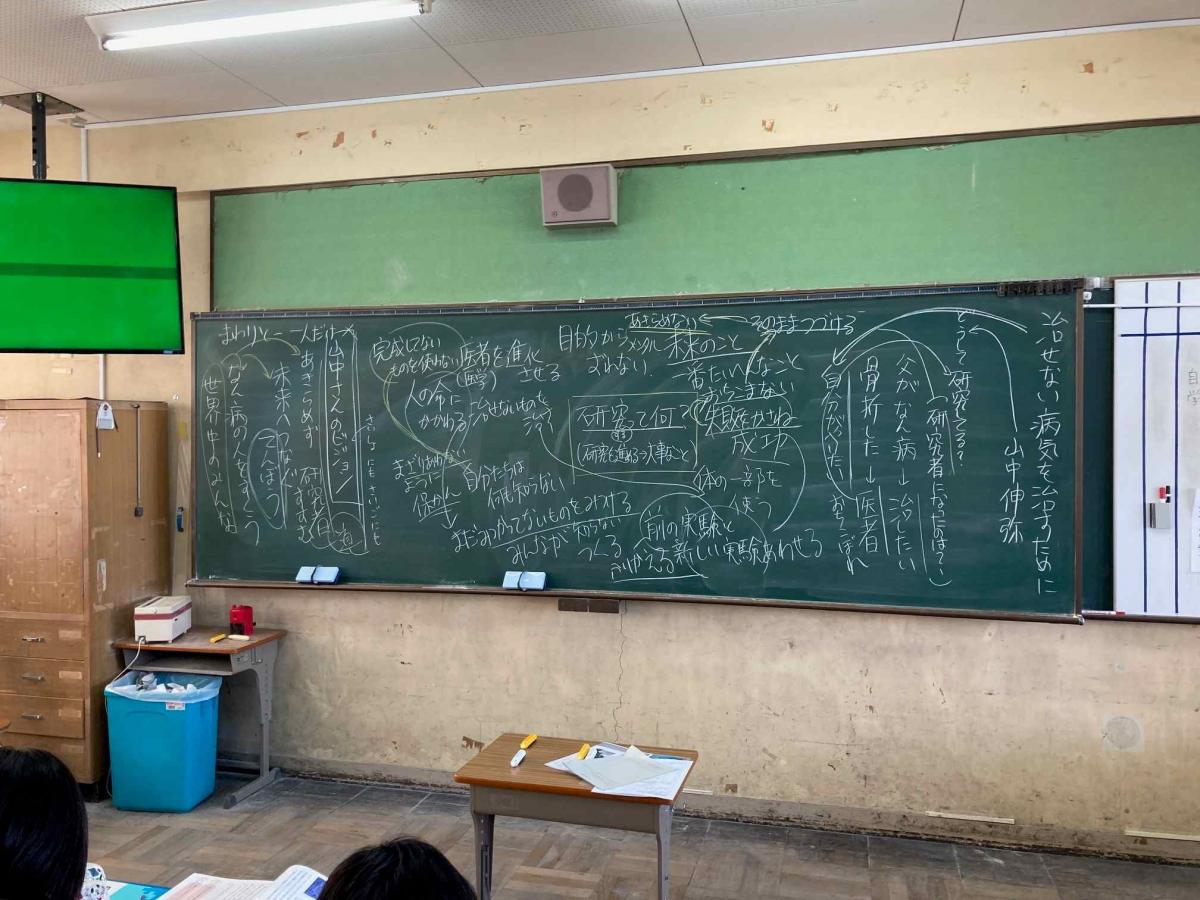 治せない病気を治すために
山中伸弥
どうして研究してる?
(研究者になったのは?)
父がなん病→治したい
骨折した→医者
自分がなりた
おちこぼれ
あきらめない
そのままつづける
目的から
未来のこと
おれない
一番たいへんなこと
おちこまない
失敗かさね
成功
研究って何?
研究を進める→大事なこと
体の一部を
使う
前の実験と
新しい実験あわせる
完成してない
ものを使わない
医者を進化
(医学)
させる
人の命に
かかわる
治せないものを
治す
自分たちは
何も知らない
保かん
まだみつかってないものをみつける
みんなが知らない
つくる
さらにも
山中さんのビジョン
あきらめず
研究
未来へつなぐ
なん病の人をすくう
世界中のみんな
まわりと
一人だけ×